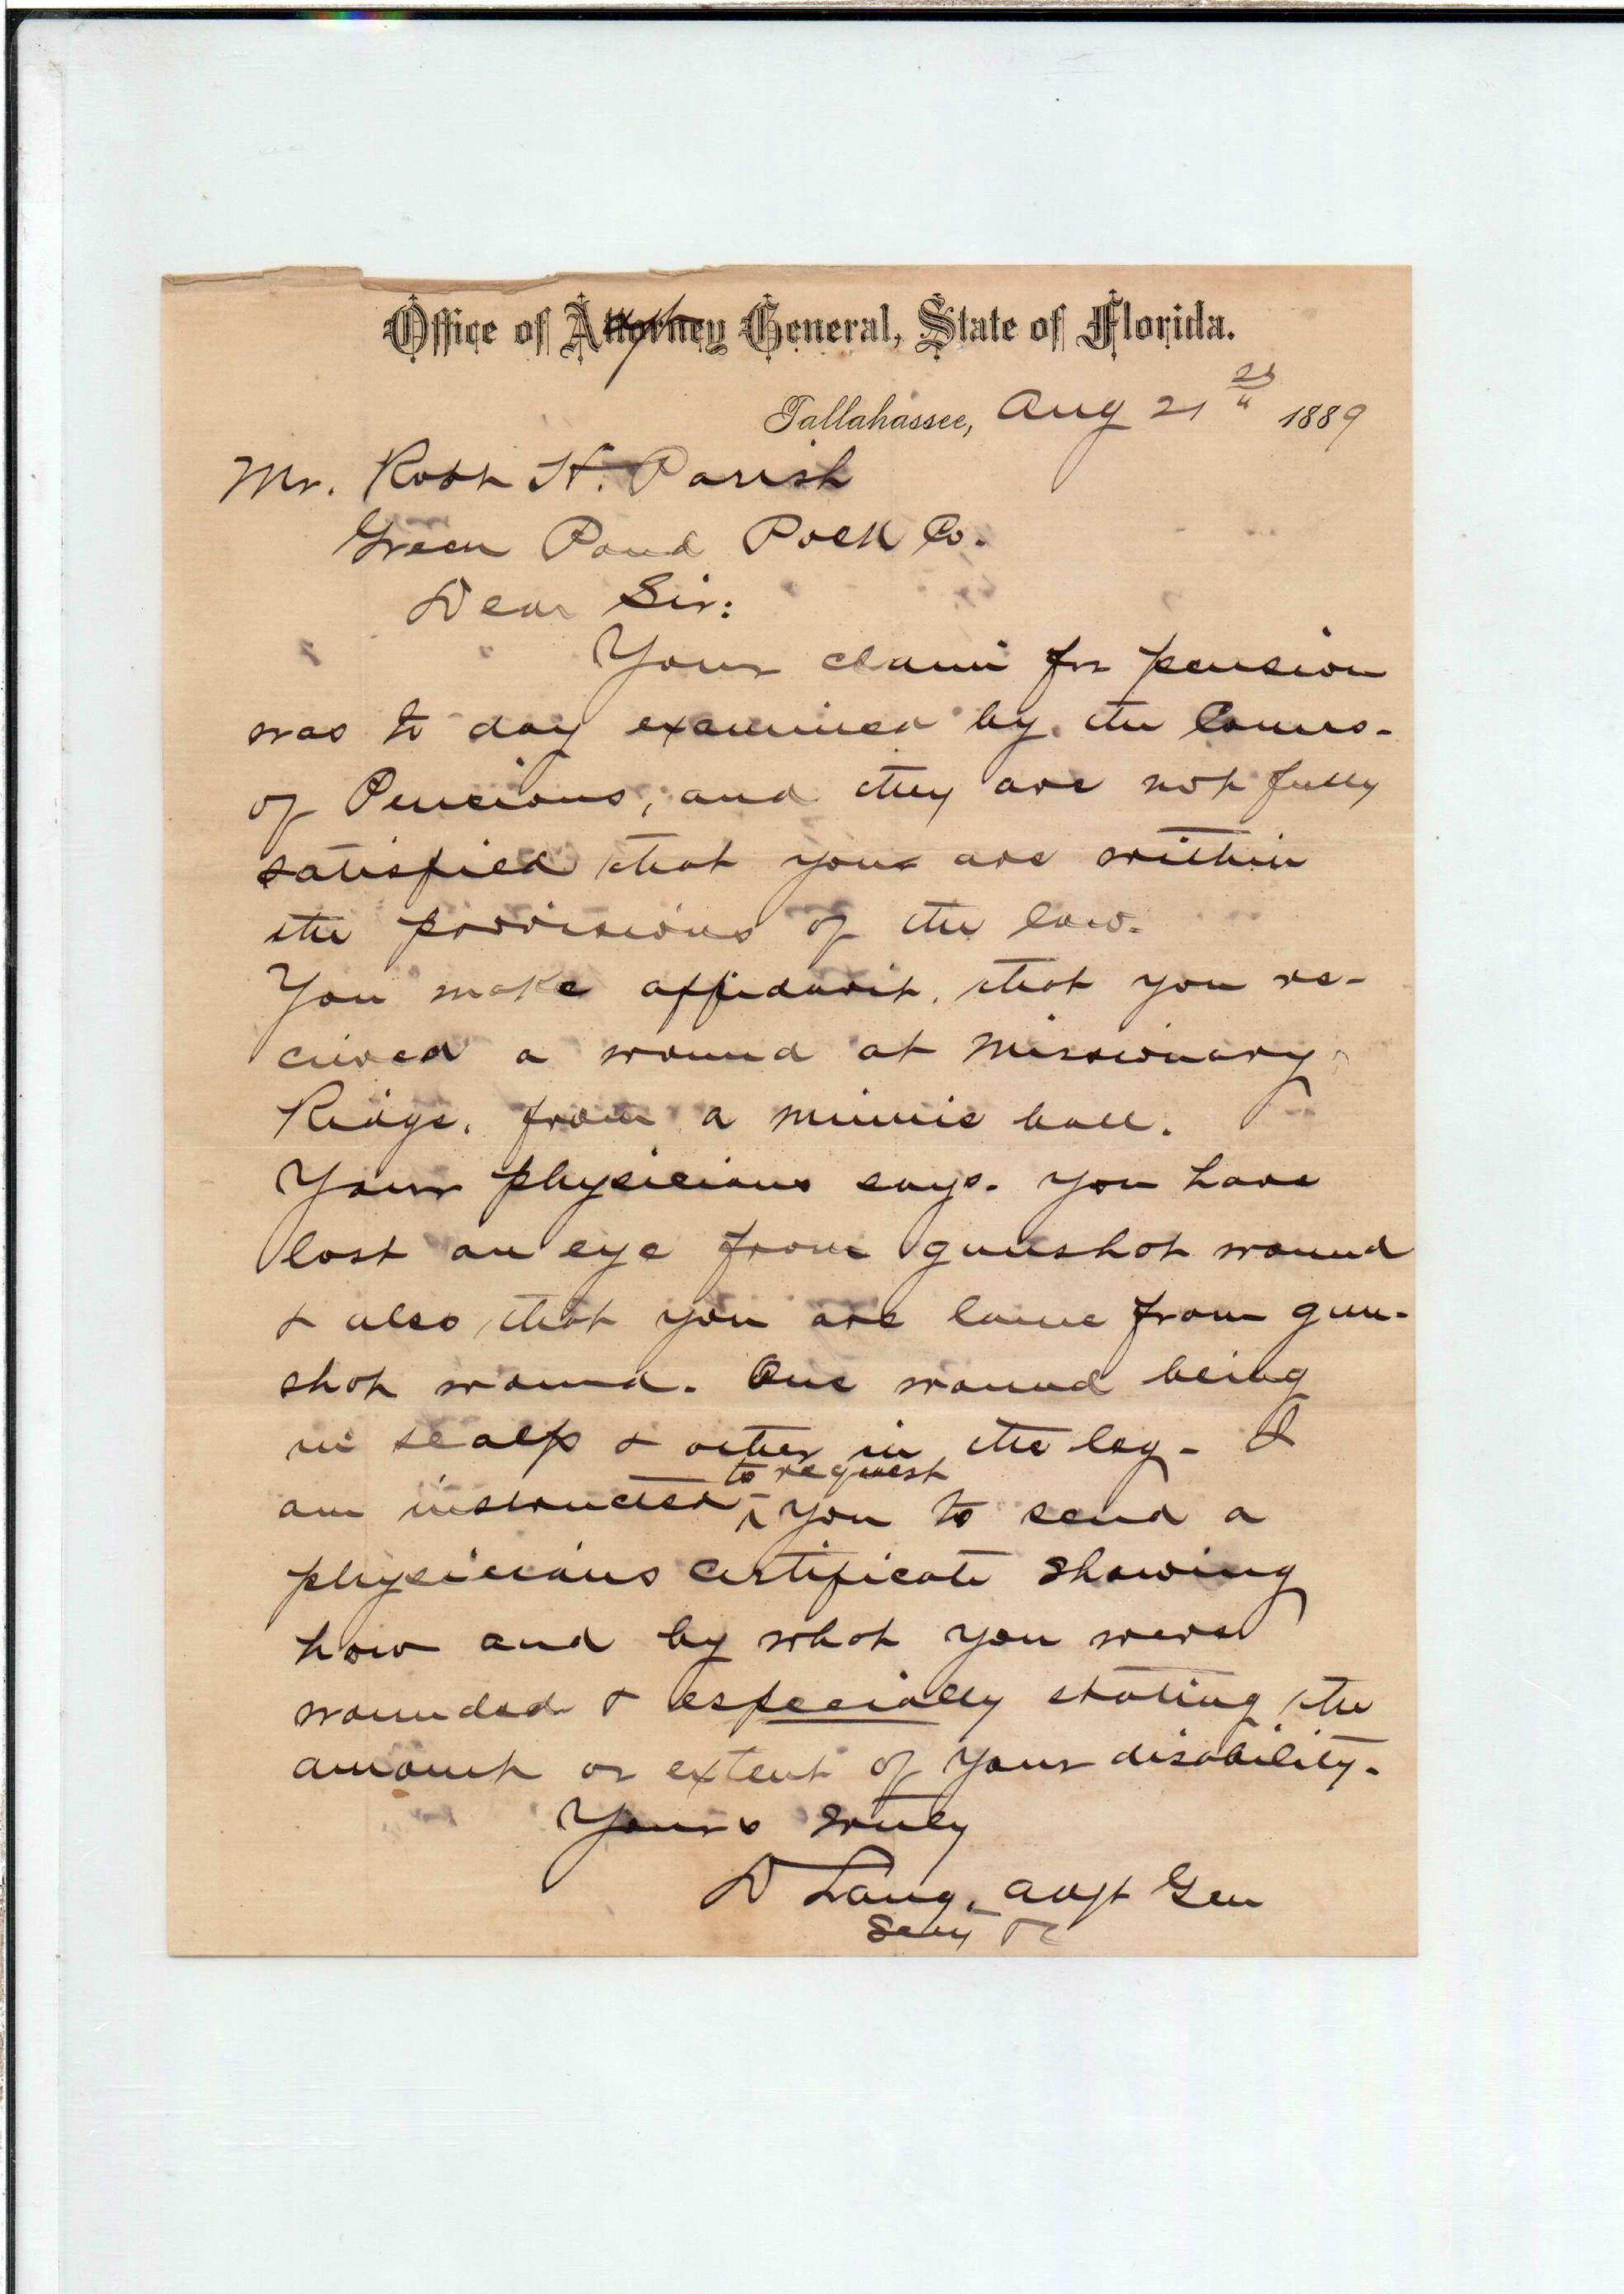 Office of Attorney General, State of Florida.
Tallahassee, Aug 21 1889
Mr. Robt H. Parish
Green Pond Polk Co.
Dear Sir:
Your claim for pension
was to day examined by the Comrs.
of Pensions, and they are not fully
satisfied that you are within
the provisions of the law.
You make affidavit, that you re-
cieved a wound at Missionary
Ridge, from a minnie ball.
Your physicians says. you have
lost an eye from gunshot wound
& also that you are lame from gun-
shot wound. One wound being
in scalp & other in the leg - I
to request
am instructed ^ you to send a
physicians certificate showing
how and by what you were
wounded & especially stating the
amount or extent of your disability.
Yours truly
D Lang, Adjt Gen
Secy